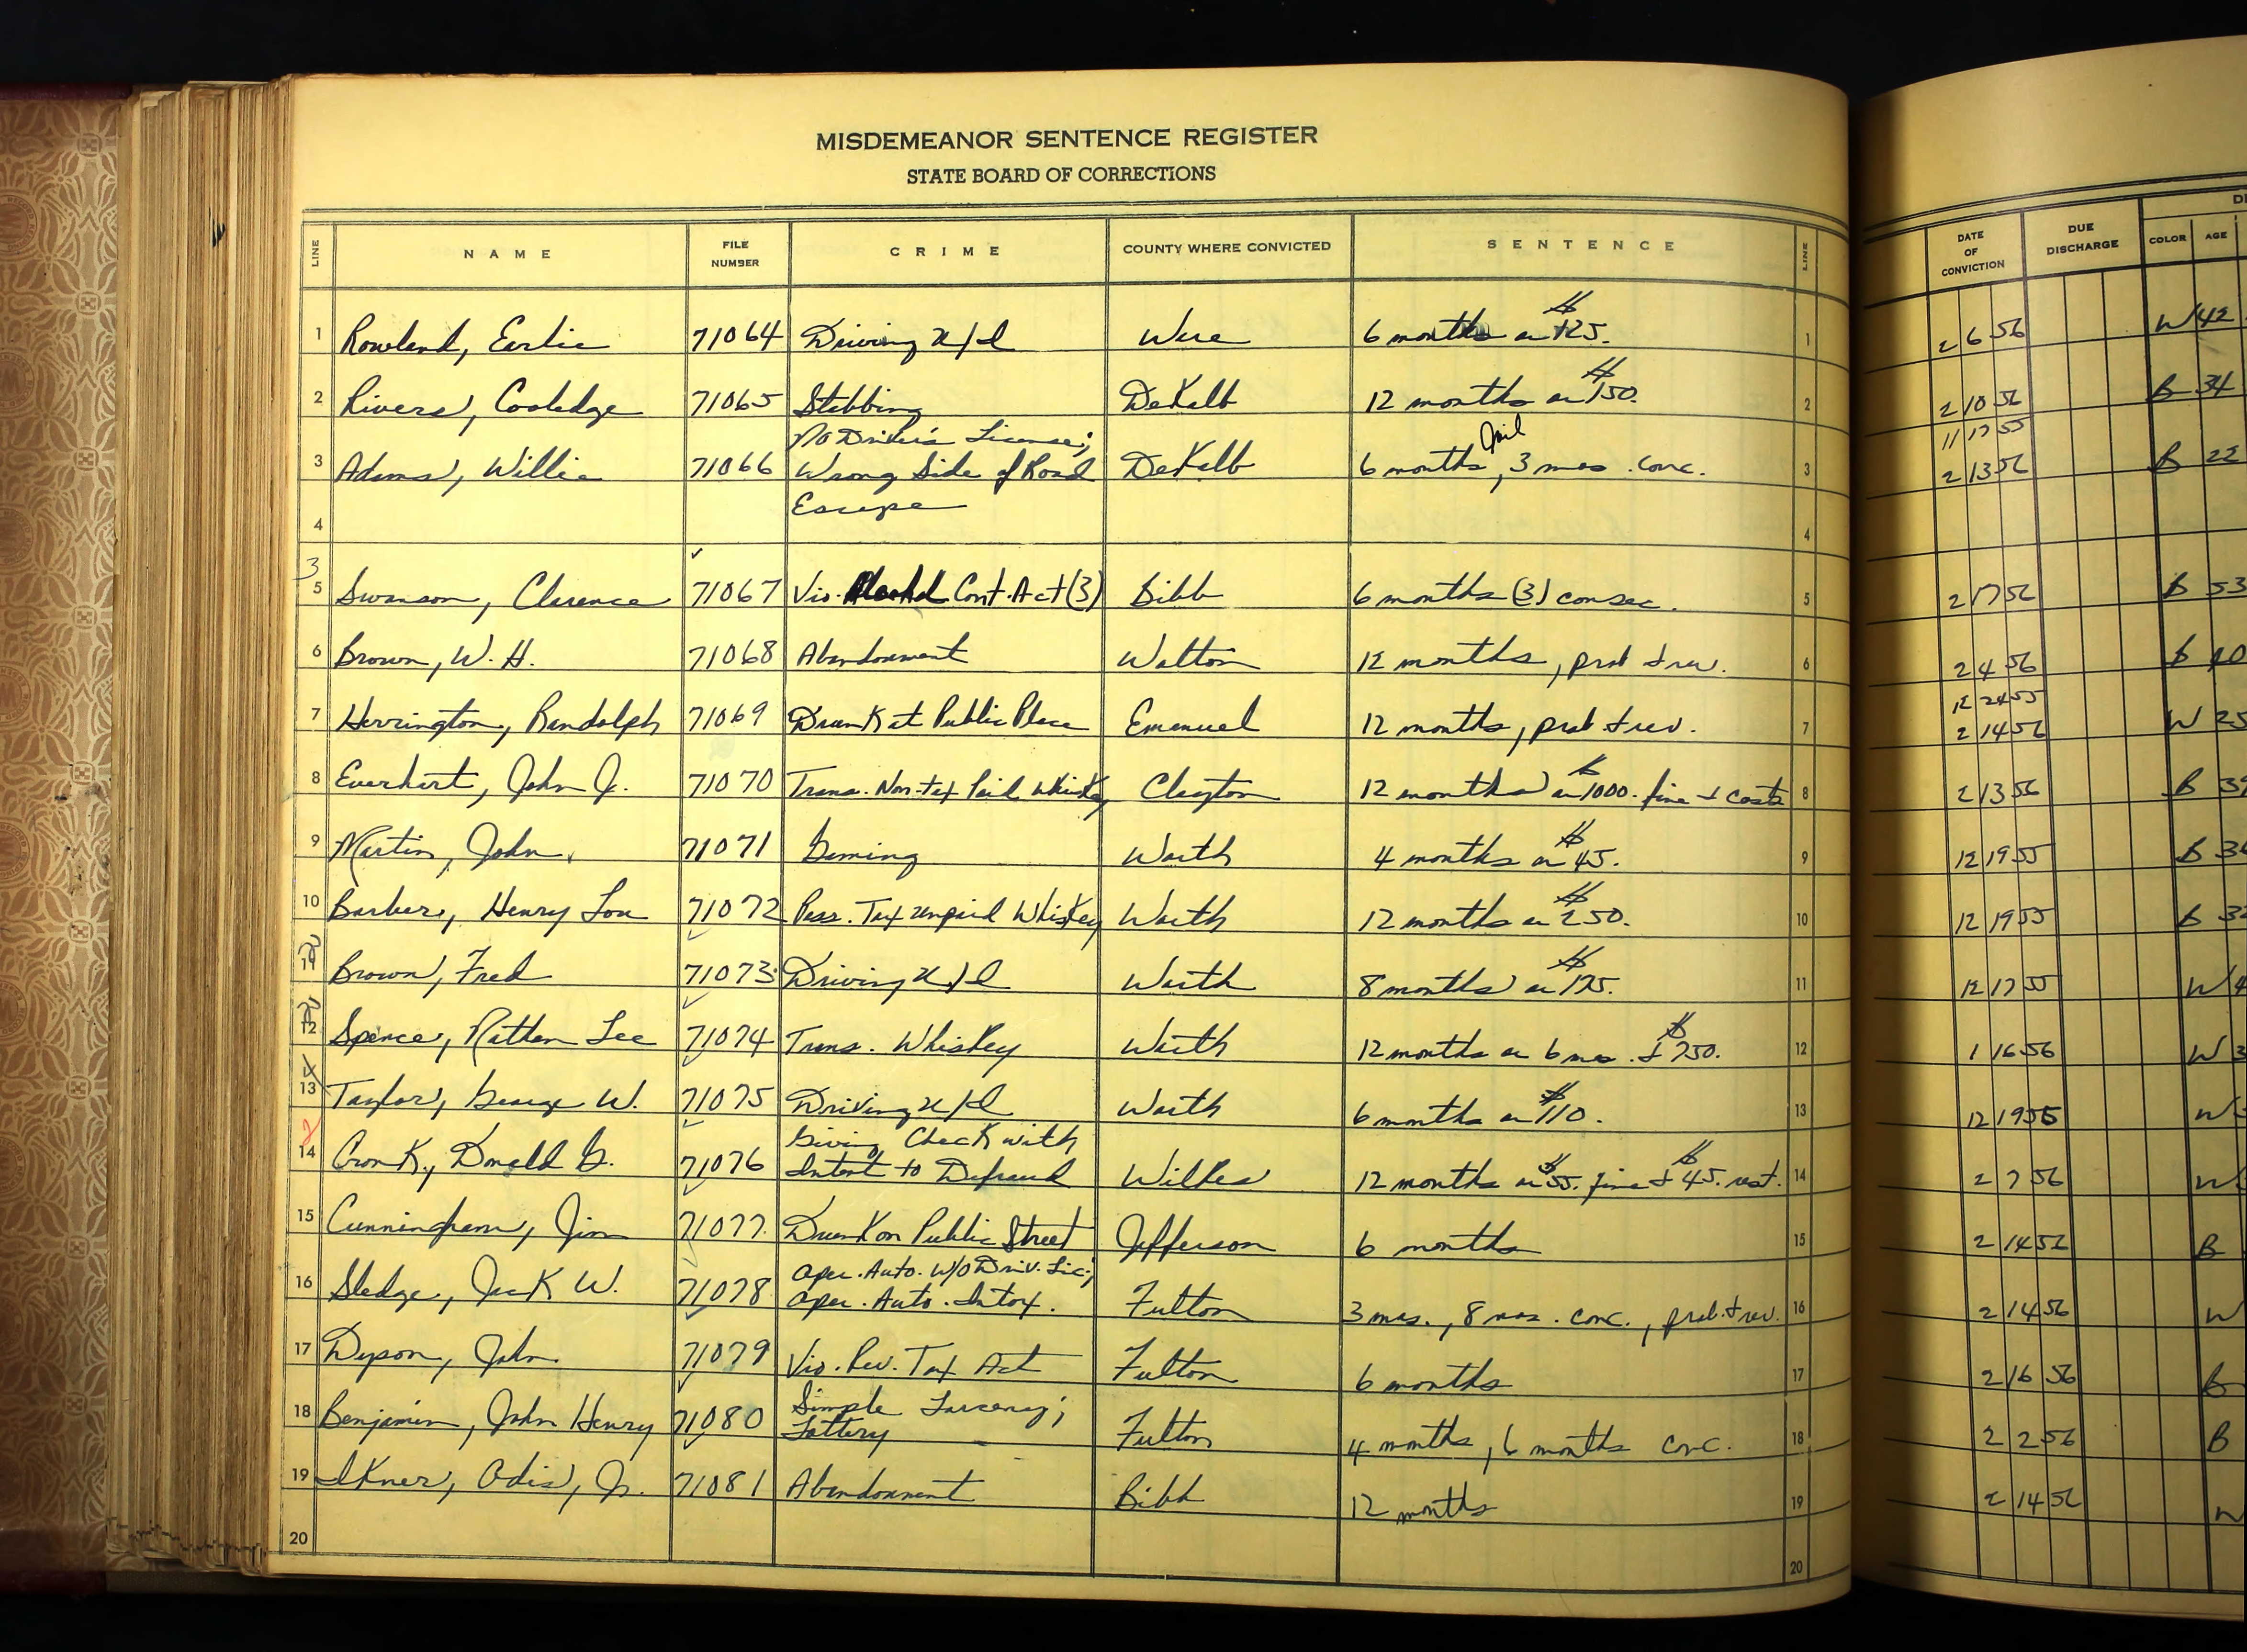 MISDEMEANOR SENTENCE REGISTER
STATE BOARD OF CORRECTIONS
LINE NAME FILE NUMBER CRIME COUNTY WHERE CONVICTED SENTENCE LINE DATE OF CONVICTION DUE DISCHARGE COLOR AGE
1 Rowland, Earlie 71064 Driving u/l Ware 6 months or $125. 1 2 6 56 W 42
2 Rivers, Cooledge 71065 Stabbing DeKalb 12 months or $150. 2 2 10 56 B 34
No Driver's License; Jail 11 17 55
3 Adams, Willie 71066 Wrong Side of Road DeKalb 6 months, 3 mos. conc. 3 2 13 56 B 22
4 Escape 4
3
5 Swanson, Clarence 71067 Vio. Alcohol Cont. Act (3) Bibb 6 months (3) consec. 5 2 17 56 B 53
6 Brown, W. H. 71068 Abandonment Walton 12 months, prob & rev. 6 2 4 56 B 40
12 24 55
7 Herrington, Randolph 71069 Drunk at Public Place Emanuel 12 months, prob & rev. 7 2 14 56 W 25
8 Everhart, John J. 71070 Trans. Non-tax Paid Whiskey Clayton 12 months or $1000. fine & costs 8 2 13 56 B
9 Martin, John 71071 Gaming Worth 4 months or $45. 9 12 19 55 B
10 Barber, Henry Lou 71072 Poss. Tax unpaid Whiskey Worth 12 months or $250. 10 12 19 55 B
11 Brown, Fred 71073 Driving u/l Worth 8 months or $175. 11 12 17 55 W
12 Spence, Nathan Lee 71074 Trans. Whiskey Worth 12 months or 6 mos. & $750. 12 1 16 56 W
13 Taylor, George W. 71075 Driving u/l Worth 6 months or $110. 13 12 19 55 W
2 Giving Check with
14 Cronk, Donald G. 71076 Intent to Defraud Wilkes 12 months or $55. fine & $45. rest. 14 2 7 56 W
15 Cunningham, Jim 71077 Drunk on Public Street Jefferson 6 months 15 2 14 56 B
Oper. Auto. W/O Driv. Lic;
16 Sledge, Jack W. 71078 Oper. Auto. Intox. Fulton 3 mos., 8 mos. conc., prob. & rev. 16 2 14 56 W
17 Dyson, John 71079 Vio. Rev. Tax Act Fulton 6 months 17 2 16 56 B
Simple Larceny;
18 Benjamin, John Henry 71080 Lottery Fulton 4 months, 6 months conc. 18 2 2 56 B
19 Ikner, Odis, Jr. 71081 Abandonment Bibb 12 months 19 2 14 56 W
20 20